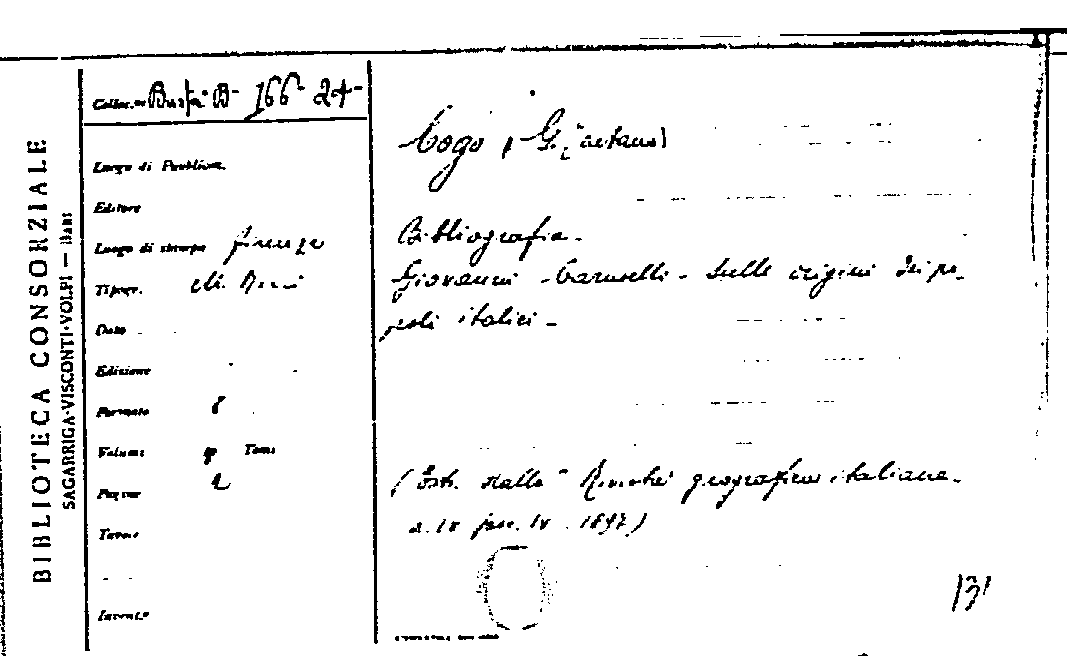 BIBLIOTECA CONSORZIALE
SAGARRIGA-VISCONTI-VOLPI — BARI
Colloc.ne Busta B- 166- 24-
Luogo di Pubblica.
Editore
Luogo di stampa Firenze
Tipogr. M. Ricci
Data
Edizione
Formato 8
Volumi Tomi
Pagine 2
Tavole
Invent.º
Cogo, G[aetano]
Bibliografia.
Giovanni Caruselli - Sulle origini dei po-
poli italici -
(Estr. dalla "Rivista geografica italiana.
a. IV fasc. IV. 1897)
131